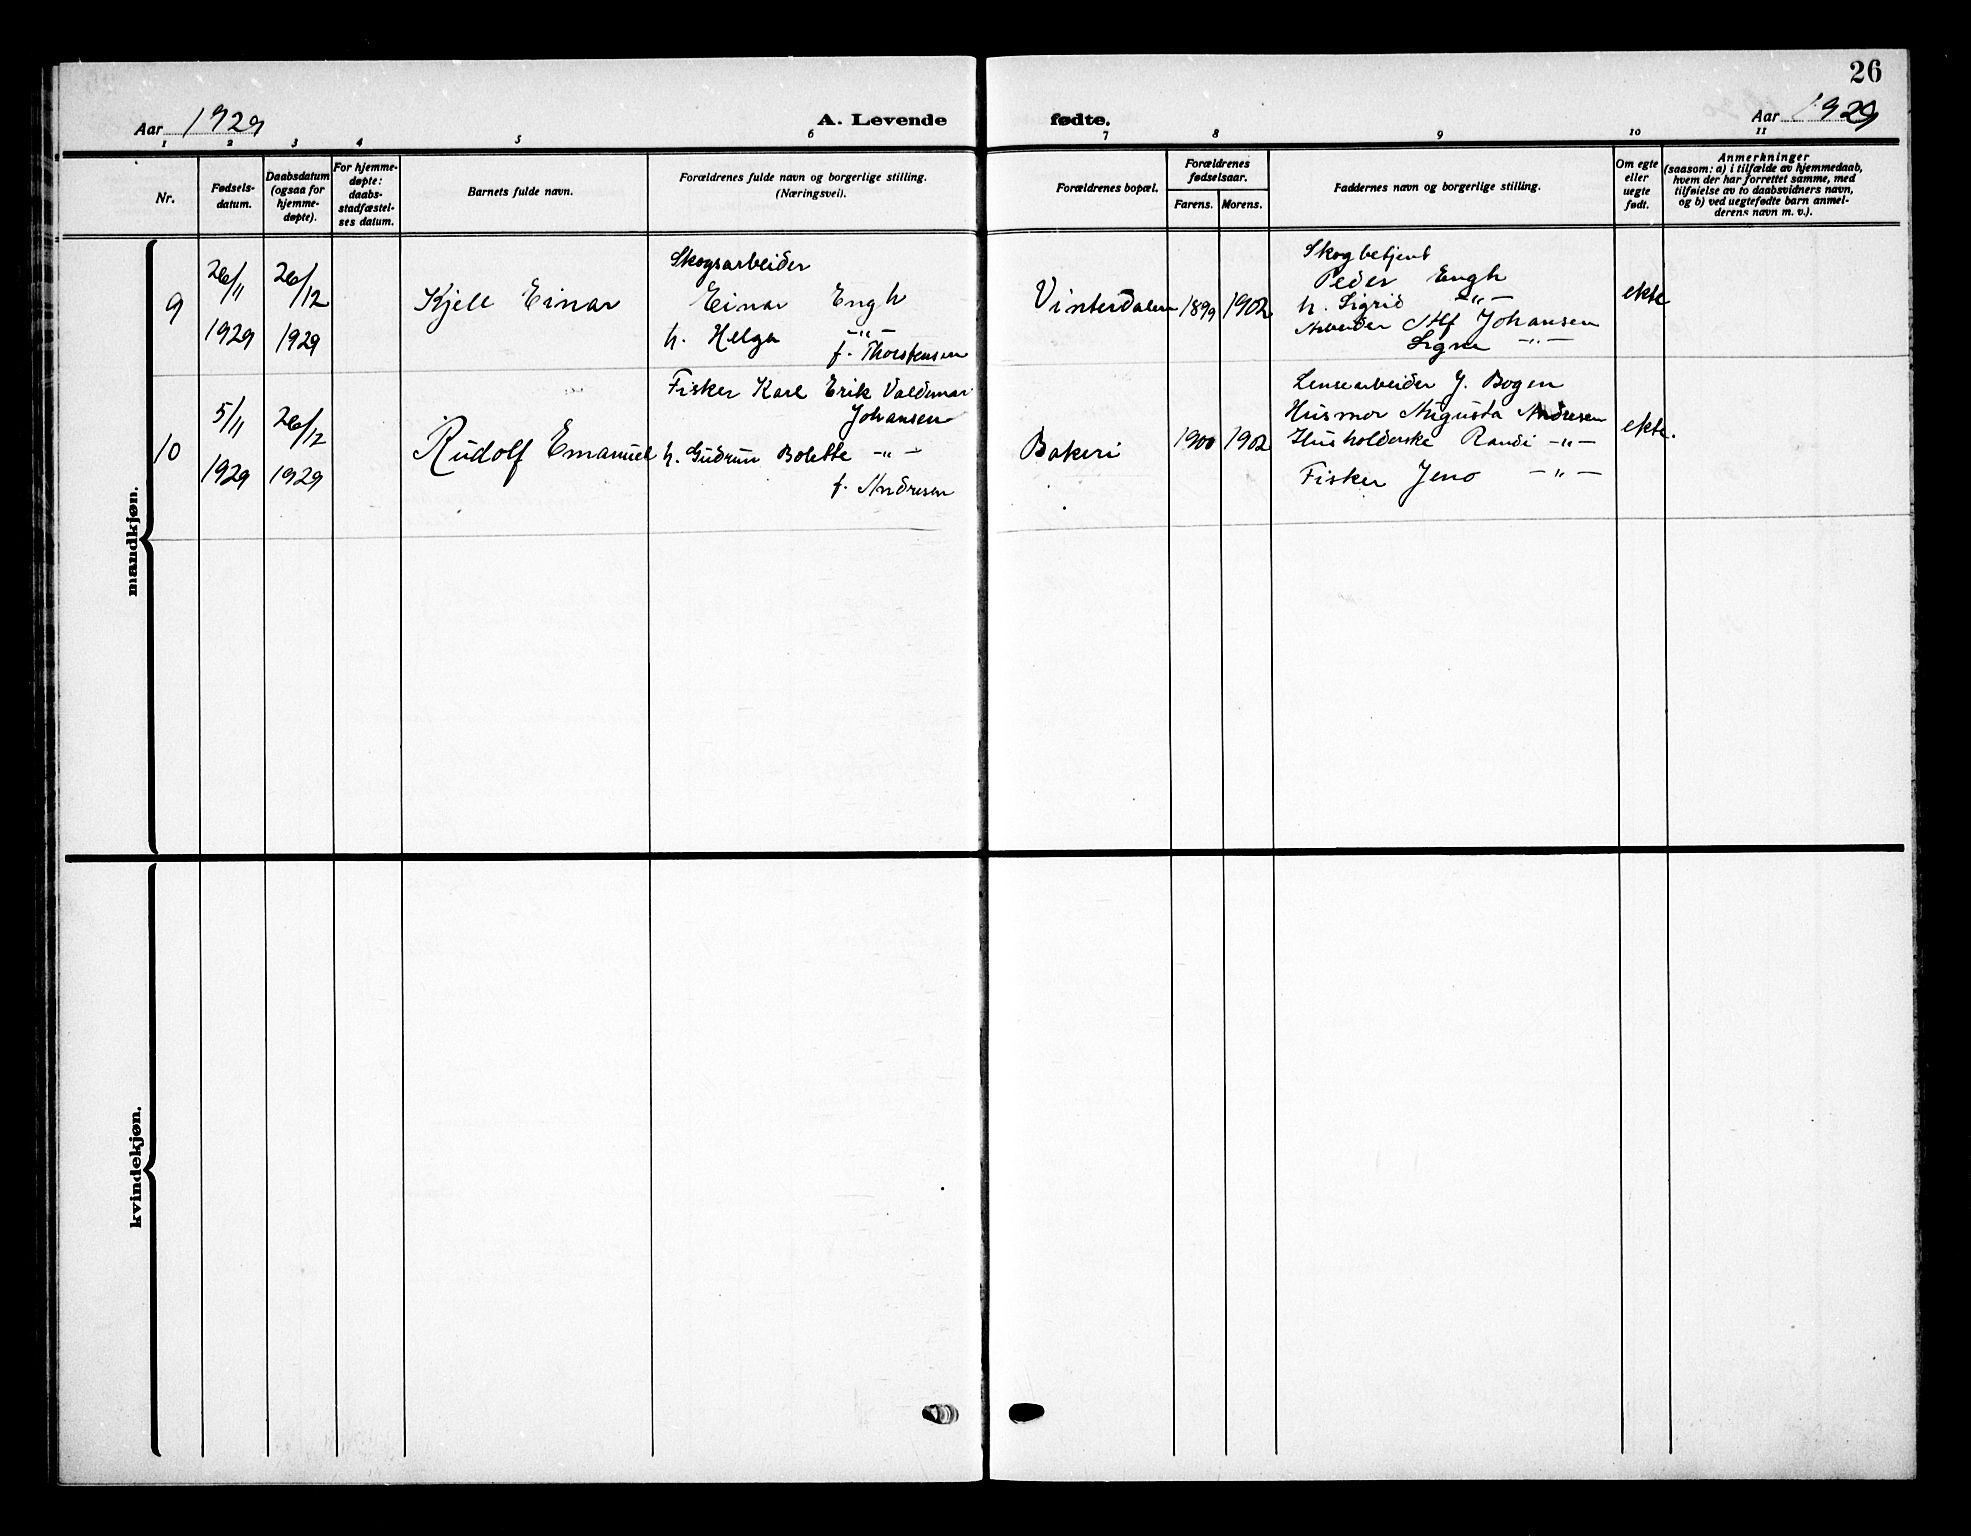 26
Aar 1929
A. Levende fødte.
Aar 1929
1 2 3 4 5 6 7 8 9 10 11
Nr.
Fødsels-
datum.
Daabsdatum
(ogsaa for
hjemme-
døpte).
For hjemme-
døpte:
daabs-
stadfæstel-
ses datum.
Barnets fulde navn.
Forældrenes fulde navn og borgerlige stilling.
(Næringsvei).
Forældrenes bopæl.
Forældrenes
fødselsaar.
Farens. Morens.
Faddernes navn og borgerlige stilling.
Om egte
eller
uegte
født.
Anmerkninger
(saasom: a) i tilfælde av hjemmedaab,
hvem der har forrettet samme, med
tilføielse av to daabsvidners navn,
og b) ved uegtefødte barn anmel-
derens navn m. v.).
mandkjøn.
9
26/11
1929
26/12
1929
Kjell Einar
Skogsarbeider
Einar Engh
h. Helga —"—
f. Thorstensen
Vinterdalen
1899
1902
Skogbetjent
Peder Engh
h. Sigrid —"—
Arbeider Alf Johansen
Signe —"—
ekte
10
5/11
1929
26/12
1929
Rudolf Emanuel
Fisker Karl Erik Valdemar
Johansen
h. Gudrun Bolette —"—
f. Andresen
Bakeri
1900
1902
Lensearbeider J. Bogen
Husmor Augusta Andresen
Husholderske Randi —"—
Fisker Jens —"—
ekte.
kvindekjøn.